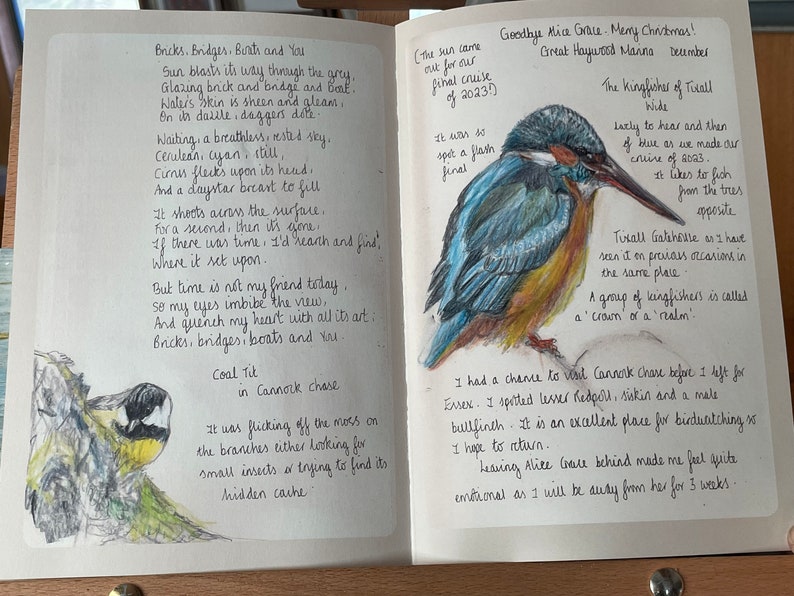 Bricks, Bridges, Boats and You
Sun blasts its way through the grey,
Glazing brick and bridge and boat,
Water's skin is sheen and gleam,
On its dazzle, daggers dote.
Waiting, a breathless, rested sky,
Cerulean, cyan, still,
Cirrus flecks upon its head,
And a daystar breast to fill
It shoots across the surface,
For a second, then its gone,
If there was time, I'd search and find,
Where it set upon.
But time is not my friend today,
So my eyes imbibe the view,
And quench my heart with all its art;
Bricks, bridges, boats and You.
Coal Tit
in Cannock Chase
It was flicking off the moss on
the branches either looking for
small insects or trying to find its
hidden cache.
Goodbye Alice Grace. Merry Christmas!
Great Haywood Marina December
(The sun came
out for our
final cruise
of 2023!)
The Kingfisher of Tixall
Wide
It was so
spot a flash
final
early to hear and then
of blue as we made our
cruise of 2023.
It likes to fish
from the trees
opposite
Tixall Gatehouse as I have
seen it on previous occasions in
the same place.
A group of kingfishers is called
a 'crown' or a 'realm'.
I had a chance to visit Cannock Chase before I left for
Essex. I spotted lesser Redpoll, siskin and a male
bullfinch. It is an excellent place for birdwatching so
I hope to return.
Leaving Alice Grace behind made me feel quite
emotional as I will be away from her for 3 weeks.